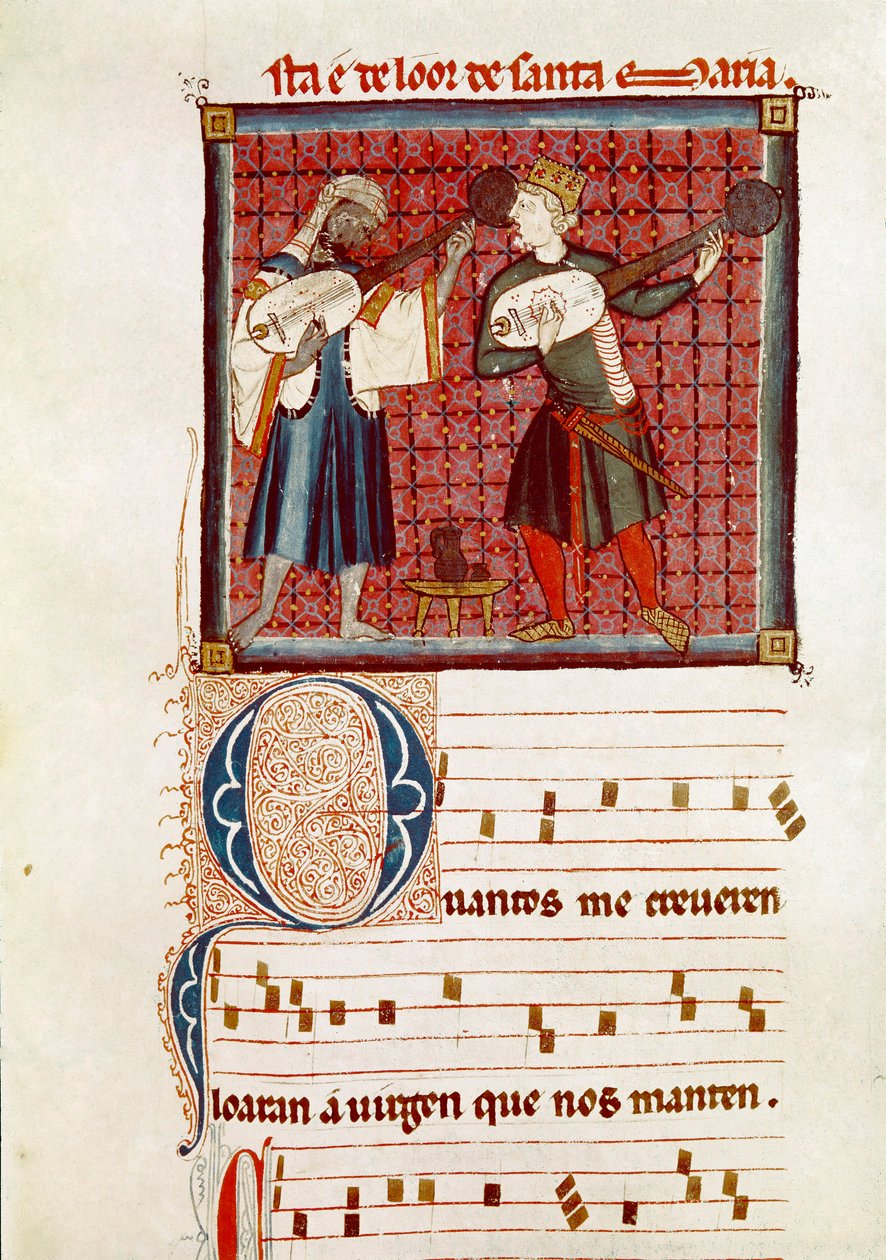 sta é de lóor de santa Maria.
Quantos me creueren
loaran á uirgen que nos manten.